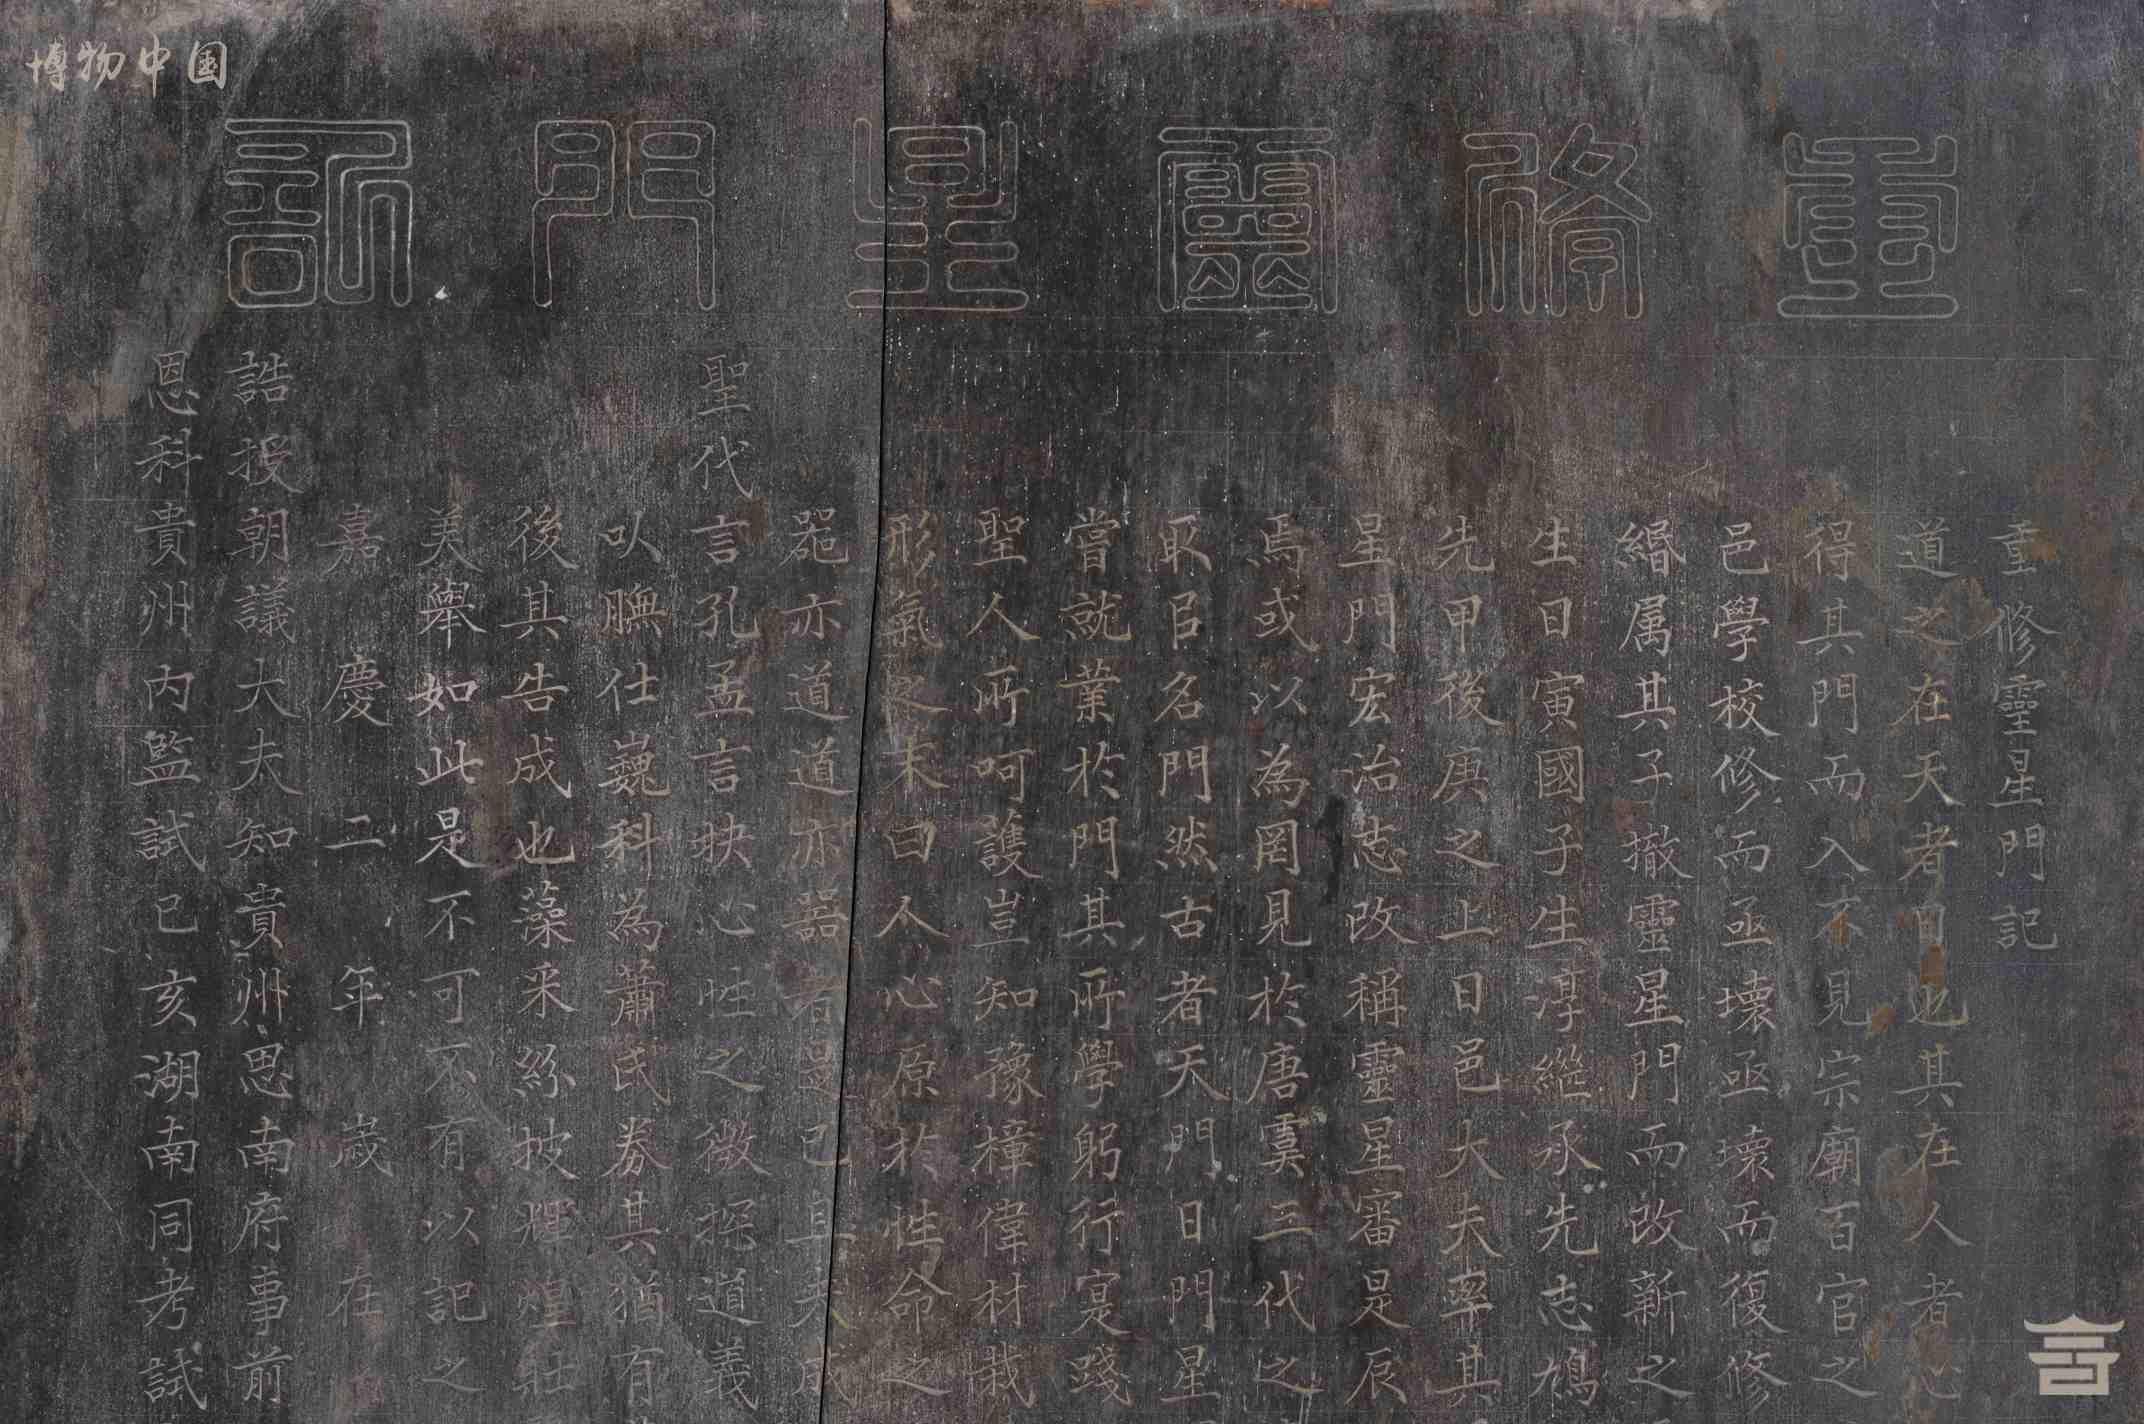 博物中国
重修靈星門記
重修靈星門記
道之在天者日也其在人者心
得其門而入不見宗廟百官之
邑學校修而亟壞亟壞而復修
緡属其子撤靈星門而改新之
生日寅國子生淳繼承先志鳩
先甲後庚之上日邑大夫率其
星門宏治志改稱靈星審是辰
焉或以為罔見於唐虞三代之
取以名門然古者天門日門星
嘗就業於門其所學躬行寔踐
聖人所呵護豈知豫樟偉材栽
形氣之末曰人心原於性命之
器亦道道亦器者是已且夫成
聖代言孔孟言言抉心性之微探道義
以膴仕巍科為蕭氏券其猶有
後其告成也藻采紛披煌煌壯
美舉如此是不可不有以記之
嘉慶二年歲在
誥授朝議大夫知貴州思南府事前
恩科貴州內監試己亥湖南同考試